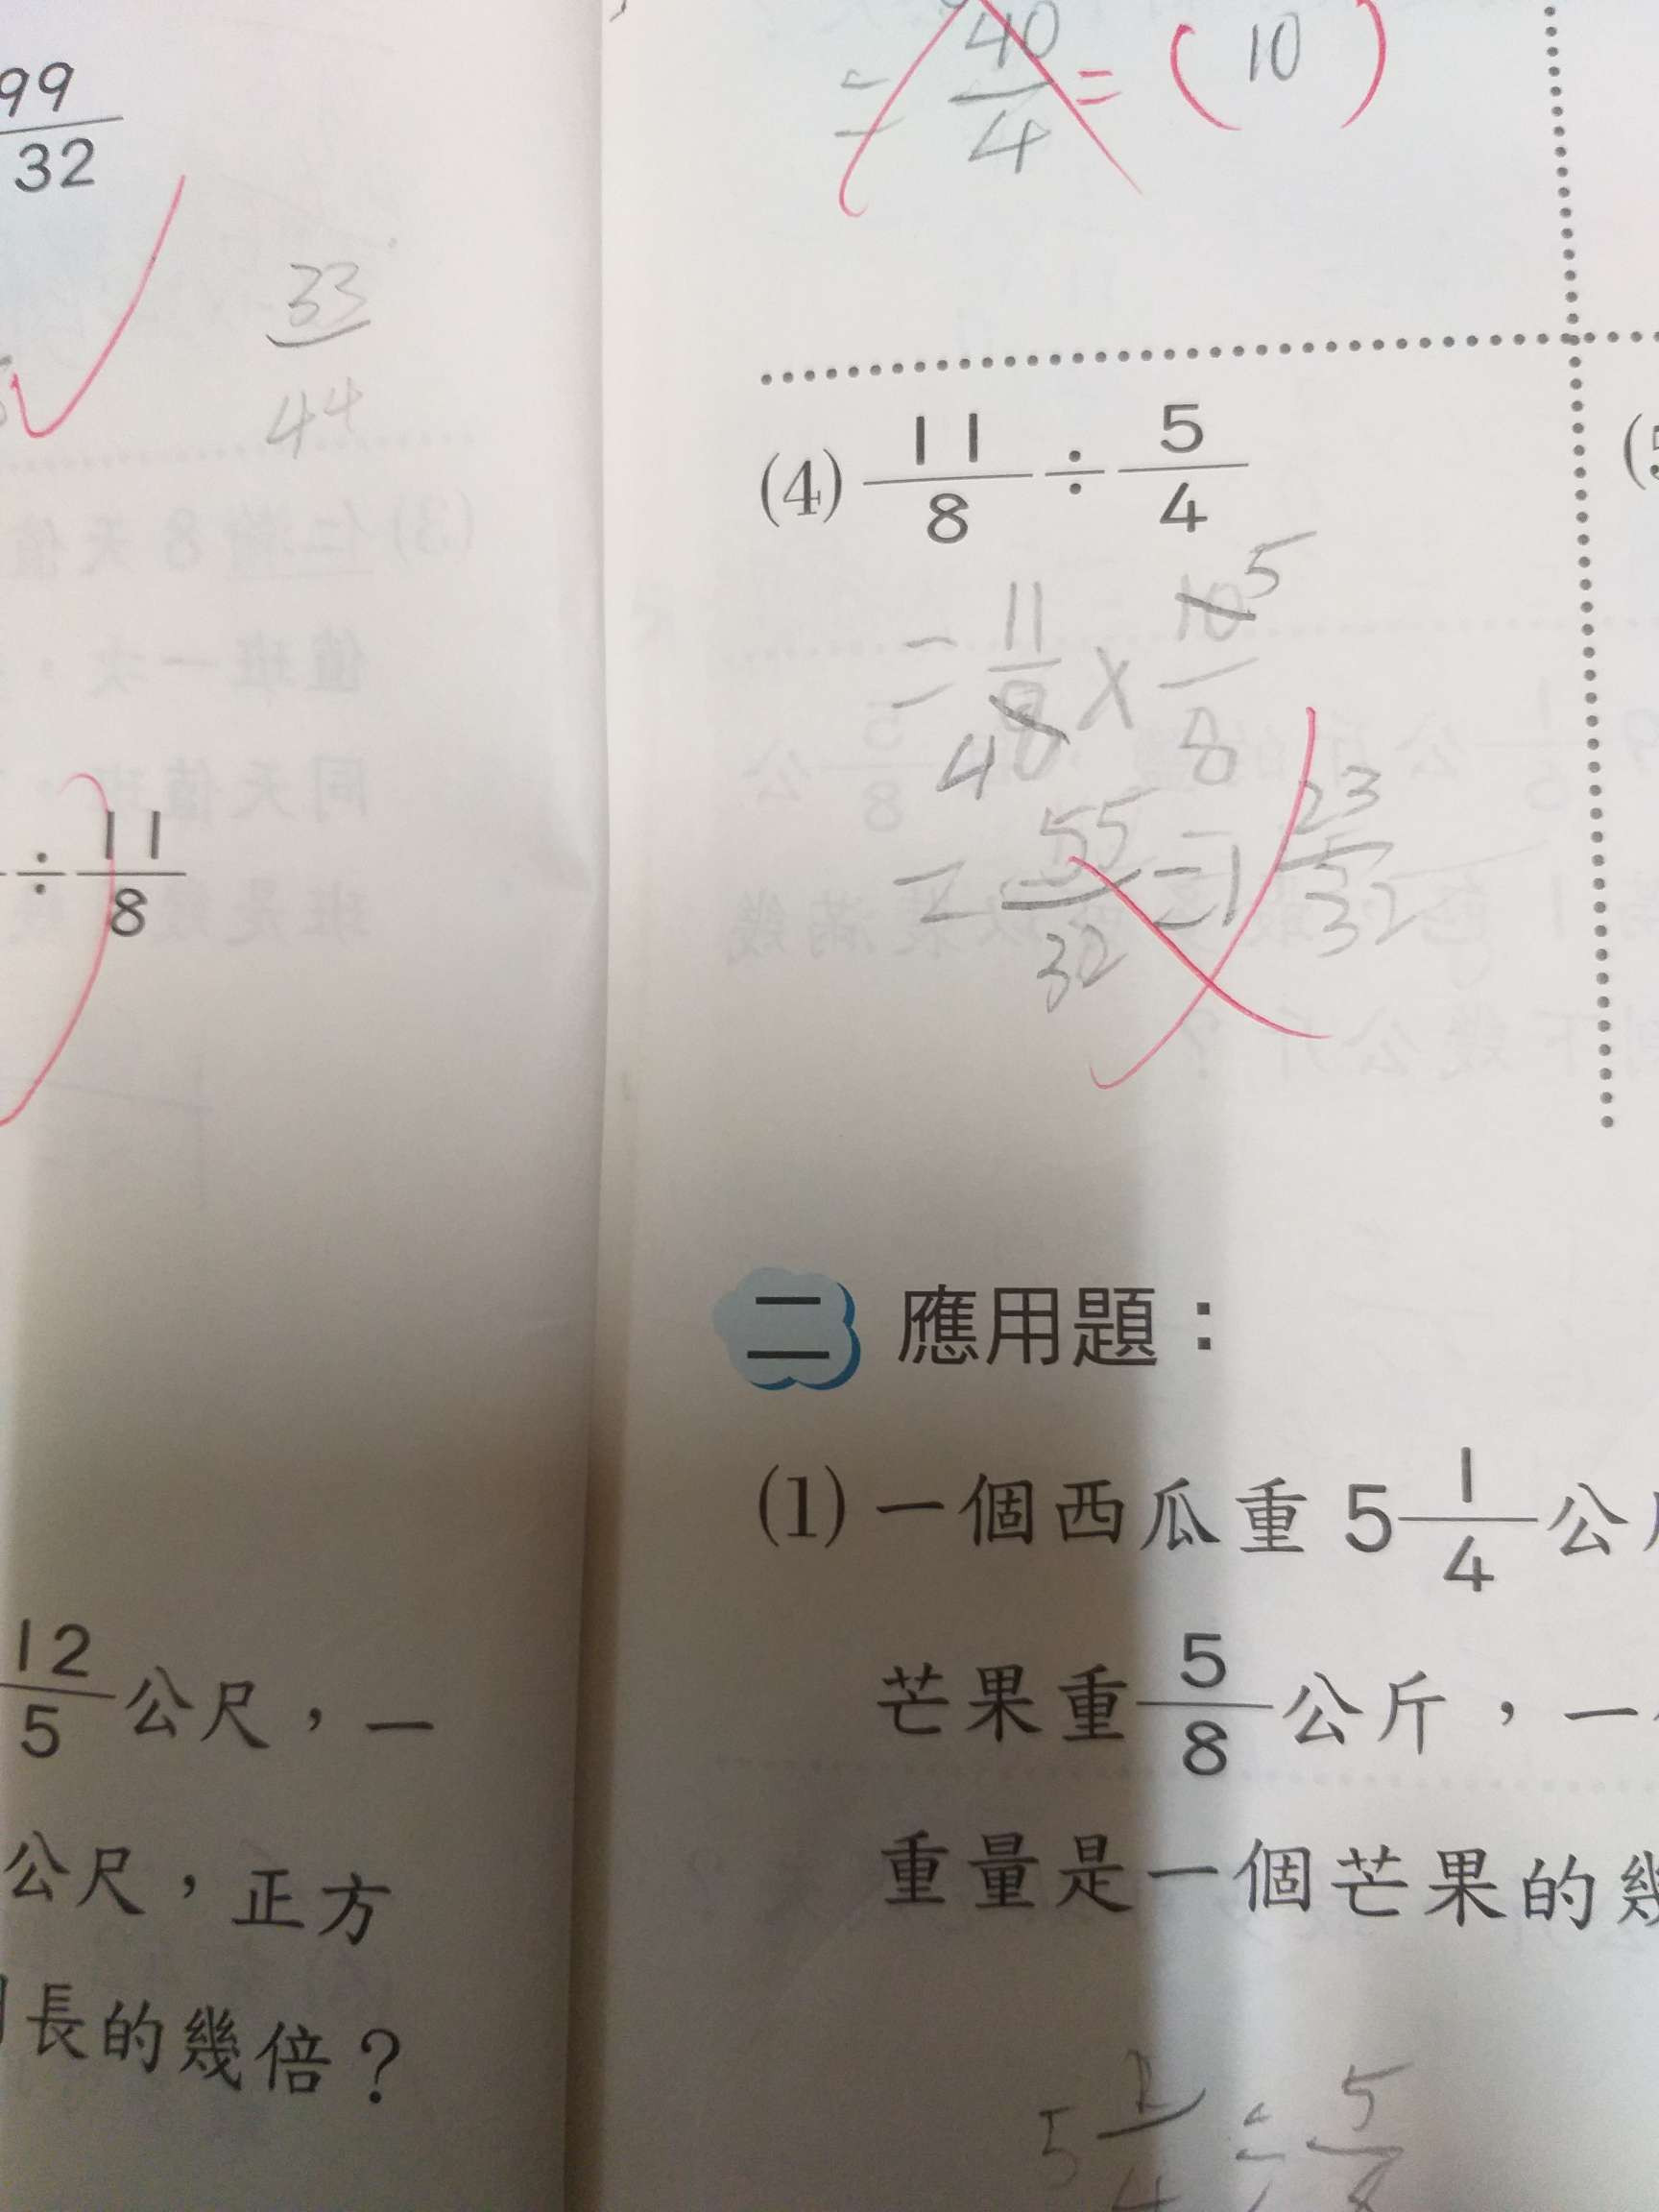 99/32
33/44
÷ 11/8
12/5 公尺，一
公尺，正方
長的幾倍？
= 40/4 = ( 10 )
(4) 11/8 ÷ 5/4
= 11/8 4 × 10/8 5
= 55/32 = 1 23/32
二 應用題：
(1) 一個西瓜重 5 1/4 公
芒果重 5/8 公斤，一
重量是一個芒果的幾